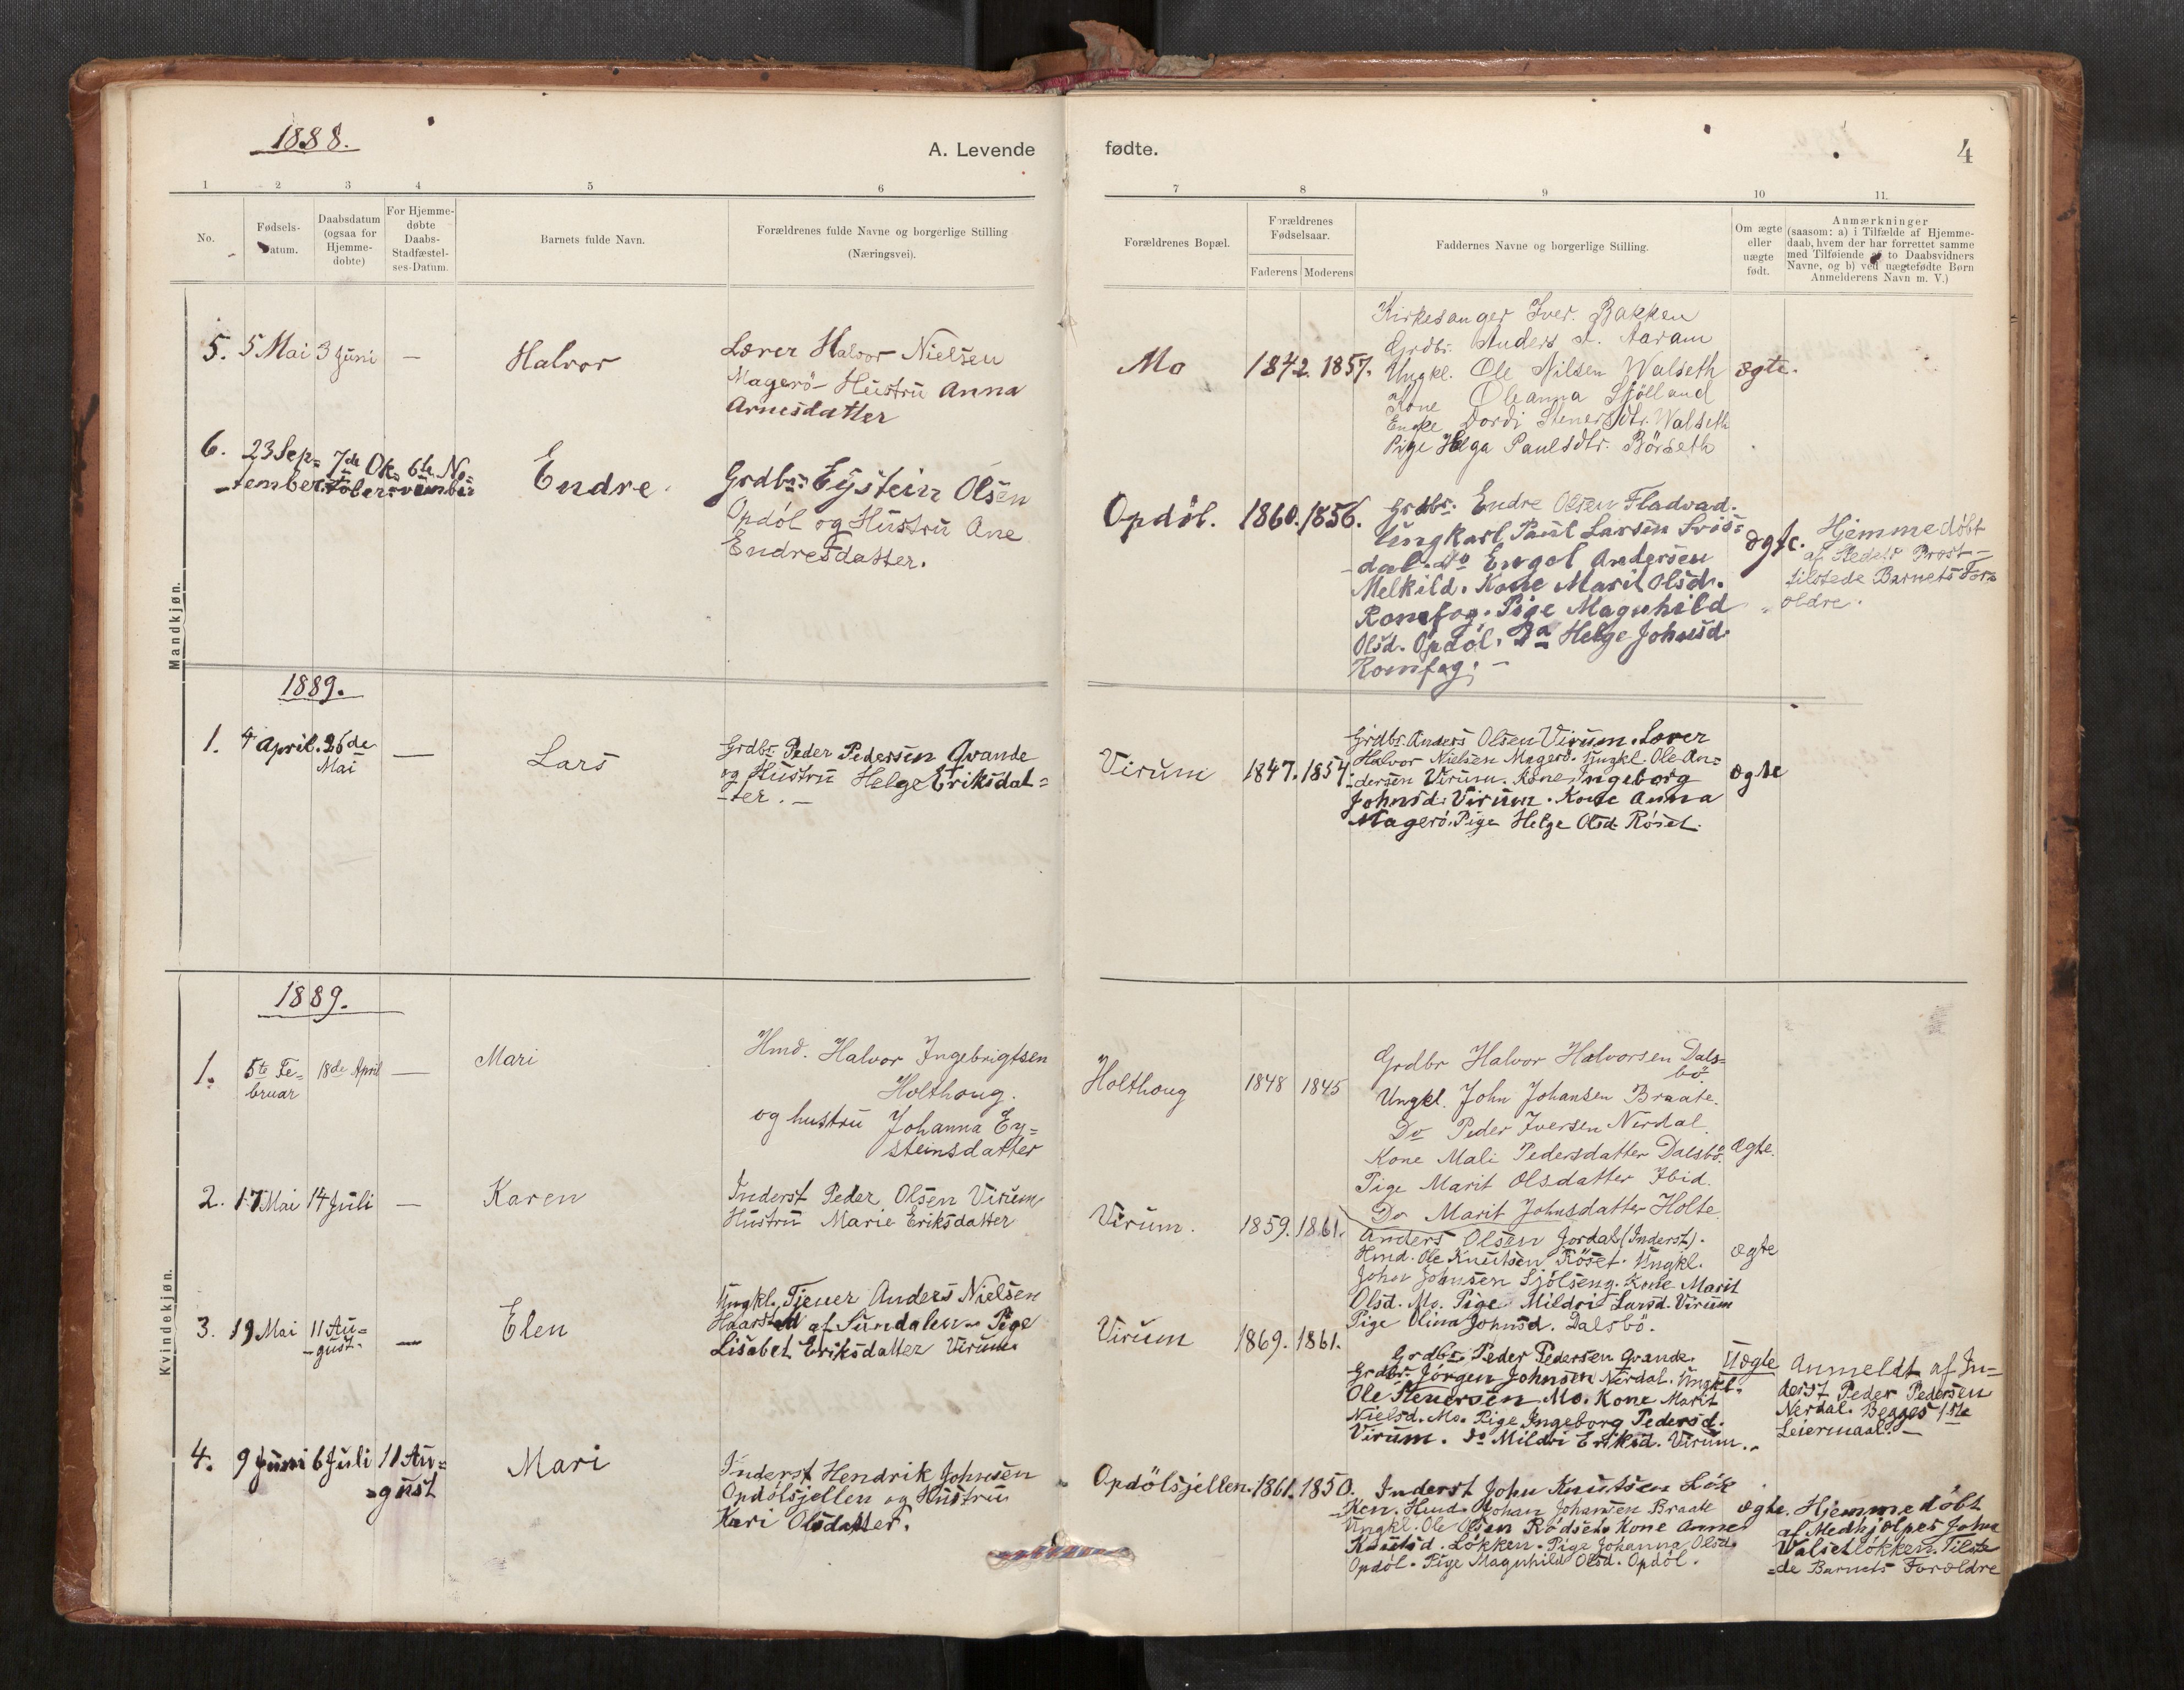 1888.
A. Levende
fødte.
4
1
2
3
4
5
6
7
8
9
10
11.
No.
Fødsels-
Datum.
Daabsdatum
(ogsaa for
Hjemme-
døbte)
For Hjemme-
døbte
Daabs-
Stadfæstel-
ses-Datum.
Barnets fulde Navn.
Forældrenes fulde Navne og borgerlige Stilling
(Næringsvei).
Forældrenes Bopæl.
Forældrenes
Fødselsaar.
Faderens
Moderens
Faddernes Navne og borgerlige Stilling.
Om ægte
eller
uægte
født.
Anmærkninger
(saasom: a) i Tilfælde af Hjemme-
daab, hvem der har forrettet samme
med Tilføiende af to Daabsvidners
Navne, og b) ved uægtefødte Børn
Anmelderens Navn m. V.)
Mandkjøn.
5.
5 Mai
3 Juni
—
Halvor
Lærer Halvor Nielsen
Magerö Hustru Anna
Arnesdatter
Mo
1842.
1857.
Kirkesanger Iver Bakken
Grdbr. Anders A. Aaram
Ungkl. Ole Nilsen Walseth
Kone Oleanna Stjölland
Enke Dordi Stenersdtr. Walseth
Pige Helga Paulsdtr. Börseth
ægte.
6.
23 Sep=
tember
7de Ok=
tober
6te No=
vember
Endre
Grdbr. Eystein Olsen
Opdöl og Hustru Ane
Endresdatter.
Opdöl.
1860.
1856.
Grdbr. Endre Olsen Fladvad.
Ungkarl Paul Larsen Svis=
dal. do Engel Andersen
Melkild. Kone Marit Olsd.
Romfog. Pige Magnhild
Olsd. Opdöl. Do Helge Johnsd.
Romfog. —
ægte.
Hjemmedöbt
af Stedets Præst —
tilstede Barnets For=
ældre.
1889.
1.
4 April.
26de
Mai
—
Lars
Grdbr. Peder Pedersen Grande
og Hustru Helge Eriksdat=
ter. —
Virum
1847.
1854.
Grdbr. Anders Olsen Virum. Lærer
Halvor Nielsen Magerö. Ungkl. Ole An=
dersen Virum. Kone Ingeborg
Johnsd. Virum. Kone Anna
Magerö. Pige Helge Olsd. Röset.
ægte
Kvindekjøn.
1889.
1.
5te Fe=
bruar
18de April
—
Mari
Hmd. Halvor Ingebrigtsen
Holthoug.
og hustru Johanna Ey=
steinsdatter
Holthoug
1848
1845
Grdbr Halvor Halvorsen Dals=
bö.
Ungkl. John Johansen Braate.
Do Peder Iversen Nerdal.
Kone Mali Pedersdatter Dalsbö.
Pige Marit Olsdatter Ibid.
Do Marit Johnsdatter Holte.
Ægte.
2.
17 Mai
14 Juli
—
Karen
Inderst Peder Olsen Virum
Hustru Marie Eriksdatter
Virum.
1859.
1861.
Anders Olsen Jordal (Inderst).
Hmd. Ole Knutsen Röset. Ungkl.
John Johnsen Sjölseng. Kone Marit
Olsd. Mo. Pige Mildri Larsd. Virum
Pige Olina Johnsd. Dalsbö.
ægte
3.
19 Mai
11 Au=
gust.
—
Elen
Ungkl. Tjener Anders Nielsen
Haarstad af Sundalen. Pige
Lisabet Eriksdatter Virum.
Virum
1869.
1861.
Grdbr. Peder Pedersen Grande.
Grdbr. Jörgen Johnsen Nerdal. Ungkl.
Ole Stenersen Mo. Kone Marit
Nielsd. Mo. Pige Ingeborg Pedersd.
Virum. do Mildri Eriksd. Virum.
Uægte
Anmeldt af In=
derst Peder Pedersen
Nerdal. Begges 1ste
Leiermaal. —
4.
9 Juni
6 Juli
11 Au=
gust
Mari
Inderst Hendrik Johnsen
Opdölsjellen og Hustru
Kari Olsdatter.
Opdölsjellen.
1861.
1850.
Inderst John Knutsen Lök=
ken. Hmd. Johan Johansen Braate
Ungkl. Ole Olsen Rödset. Kone Anne
Knutsd. Lökken. Pige Johanna Olsd.
Opdöl. Pige Magnhild Olsd. Opdöl.
ægte.
Hjemmedöbt
af Medhjælper John
Walsetlökken. Tilste
de Barnets Forældre